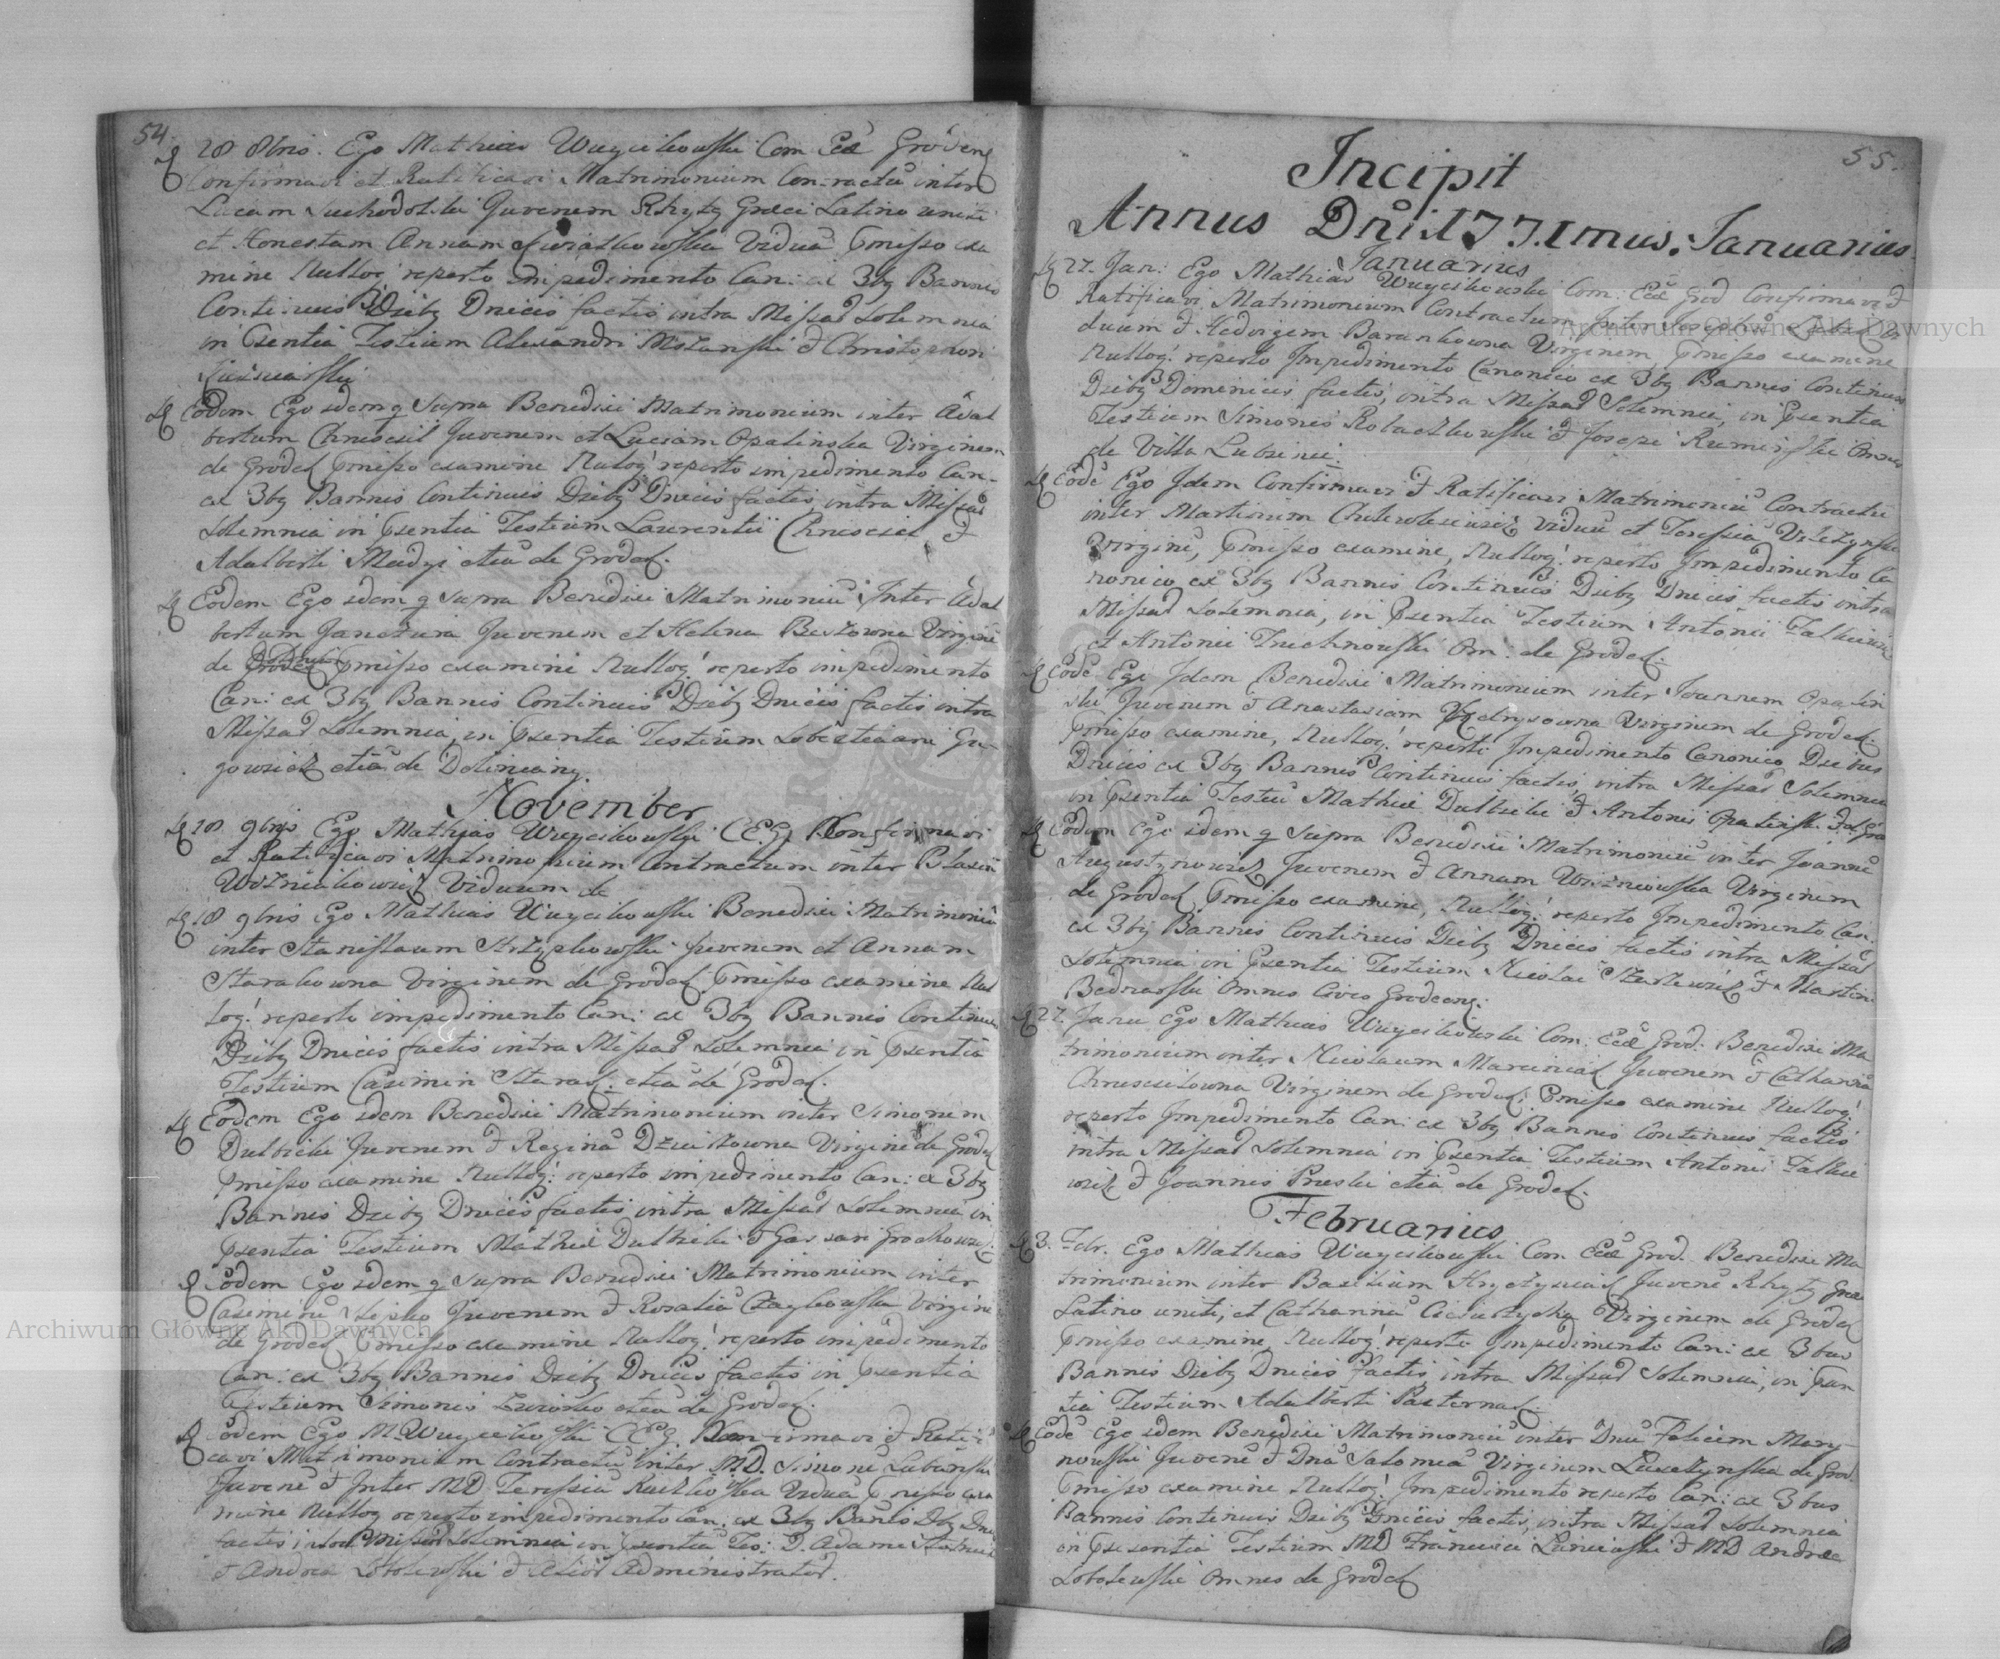 54.
28 8bris. Ego Mathias Wuycikowski Com Eccl Grodens
Confirmavi et Ratificavi Matrimonium Contractu inter
Lucam Suchodolski Juvenem Rhytg Graeci Latino uniti
et Honestam Annam Viduã Pmisso exa
mine Nullog reperto impedimento Can: ex 3bg Bannis
Continuis Diebg Dnicis factis intra Missar Solemnia
in Psentia Testium Alexandri et Christophori
Eodem Ego idem q supra Benedixi Matrimonium inter Adal
bertum Chruscil Juvenem et Luciam Opalinska Virginem
de Grodek Pmisso examine Nullog reperto impedimento Can.
ex 3bg Bannis Continuis Diebg Dnicis factis, intra Missar
Solemnia in Psentia Testium Laurentii Chruscil et
Adalberti Madyi etiã de Grodek.
Eodem Ego idem q supra Benedixi Matrimoniũ Inter Adal
bertum Janczura Juvenem et Helena Virginẽ
de Pmisso examine Nullog reperto impedimento
Can: ex 3bg Bannis Continuis Diebg Dnicis factis intra
Missar Solemnia, in Psentia Testium Sobestiani Gu-
gowicz etiã de
November
18. 9bris Ego Mathias Wuycikowski C.E.G. Confirmavi
et Ratificavi Matrimonium Contractum inter Blasiũ
Woźniakowicz Viduum de
18 9bris Ego Mathias Wuycikowski Benedixi Matrimoniũ
inter Stanislaum Juvenem et Annam
Starakowna Virginem de Grodek Pmisso examine Nul
log: reperto impedimento Can: ex 3bg Bannis Continuis
Diebg Dnicis factis intra Missar Solemnia in Psentia
Testium Casimiri etiã de Grodek.
Eodem Ego idem Benedixi Matrimonium inter Simonem
Dulbicki Juvenem et Reginã Virginẽ de Grodek
Pmisso examine Nullog: reperto impedimento Can: ex 3bg
Bannis Diebg Dnicis factis, intra Missar Solemnia in
Psentia Testium Mathiæ Dulbicki et
Eodem Ego idem q supra Benedixi Matrimonium inter
Casimirũ Juvenem et Rosaliã Czaykowska Virginẽ
de Grodek Pmisso examine Nullog: reperto impedimento
Can: ex 3bg Bannis Diebg Dnicis factis in Psentia
Testium Simonis etiã de Grodek.
Eodem Ego M. Wuycikowski CEG Confirmavi et Ratifi
cavi Matrimonium Contractũ Inter MD. Simonẽ
Juvenẽ et Inter MD Teressiã Viduã Pmisso exa
mine Nullog reperto impedimento Can: ex 3bg Banis Dbg Dnic
factis intra Missar Solemnia in Psentia Tes: D. Adami
et Andreæ et Administrator.
55.
Incipit
Annus Dni: 1771mus. Ianuarius
Januarius
27. Jan: Ego Mathias Wuycikowski Com: Eccl Grod Confirmavi et
Ratificavi Matrimonium Contractum Inter Vi
duum et Hedvigem Barankowna Virginem, Pmisso examine
Nullog: reperto Impedimento Canonico ex 3bg Bannis Continuis
Diebg Dominicis factis, intra Missar Solemnia, in Psentia
Testium Simonis et Josephi Ruminski Omnes
de Villa
Eodẽ Ego Idem Confirmavi et Ratificavi Matrimoniũ Contractũ
inter Martinum Viduũ et Teressiã
Virginẽ, Pmisso examine, Nullog: reperto Impedimento Ca
nonico, ex 3bg Bannis Continuis Diebg Dnicis factis intra
Missar Solemnia, in Psentia Testium Antonii Falkiewicz
et Antonii Om: de Grodek.
Eodẽ Ego Idem Benedixi Matrimonium inter Joannem Opalin
ski Juvenem et Anastasiam Virginem de Grodek.
Pmisso examine, Nullog: reperto Impedimento Canonico, Diebus
Dnicis ex 3bg Bannis Continuis factis, intra Missar Solemnia
in Psentia Testiũ Mathiæ Dulbicki et Antonii Opalinski de Gro
Eodem Ego idem q supra Benedixi Matrimoniũ inter Joannẽ
Augustynowicz Juvenem et Annam Woźniowska Virginem
de Grodek Pmisso examine, Nullog: reperto Impedimento Can.
ex 3bg Bannis Continuis Diebg Dnicis factis intra Missar
Solemnia in Psentia Testium Nicolai et Martini
Bednarski Omnes Cives Grodecens:
27. Janu Ego Mathias Wuycikowski Com: Eccl Grod: Benedixi Ma
trimonium inter Nicolaum Marciniak Juvenem et Catharinã
Chruscilowna Virginem de Grodek: Pmisso examine Nullog:
reperto Impedimento Can: ex 3bg Bannis Continuis factis
intra Missar Solemnia in Psentia Testium Antonii Falkie
wicz et Joannis Preski etiã de Grodek.
Februarius
3. Febr. Ego Mathias Wuycikowski Com Eccl Grod. Benedixi Ma
trimonium inter Basilium Juvenẽ Rhytg Graeci
Latino uniti, et Catharinã Virginem de Grodek
Pmisso examine, Nullog: reperto Impedimento Can: ex 3bus
Bannis Diebg Dnicis factis, intra Missar Solemnia, in Psen
tia Testium Adalberti Pasternak.
Eodẽ Ego idem Benedixi Matrimoniũ inter Dnũ Felicem Mary
nowski Juvenẽ et Dnã Salomeã Virginem de Grod.
Pmisso examine Nullog: Impedimento reperto Can: ex 3bus
Bannis Continuis Diebg Dnicis factis, intra Missar Solemnia
in Psentia Testium MD Francisci et MD Andreæ
omnes de Grodek
Archiwum Główne Akt Dawnych
Archiwum Główne Akt Dawnych